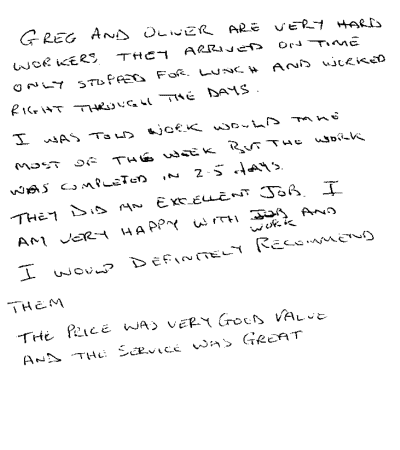 GREG AND OLIVER ARE VERY HARD
WORKERS. THEY ARRIVED ON TIME
ONLY STOPPED FOR LUNCH AND WORKED
RIGHT THROUGH THE DAYS.
I WAS TOLD WORK WOULD TAKE
MOST OF THE WEEK BUT THE WORK
WAS COMPLETED IN 2.5 DAYS.
THEY DID AN EXCELLENT JOB. I
AM VERY HAPPY WITH JOB AND
WORK
I WOULD DEFINITELY RECOMMEND
THEM
THE PRICE WAS VERY GOOD VALUE
AND THE SERVICE WAS GREAT